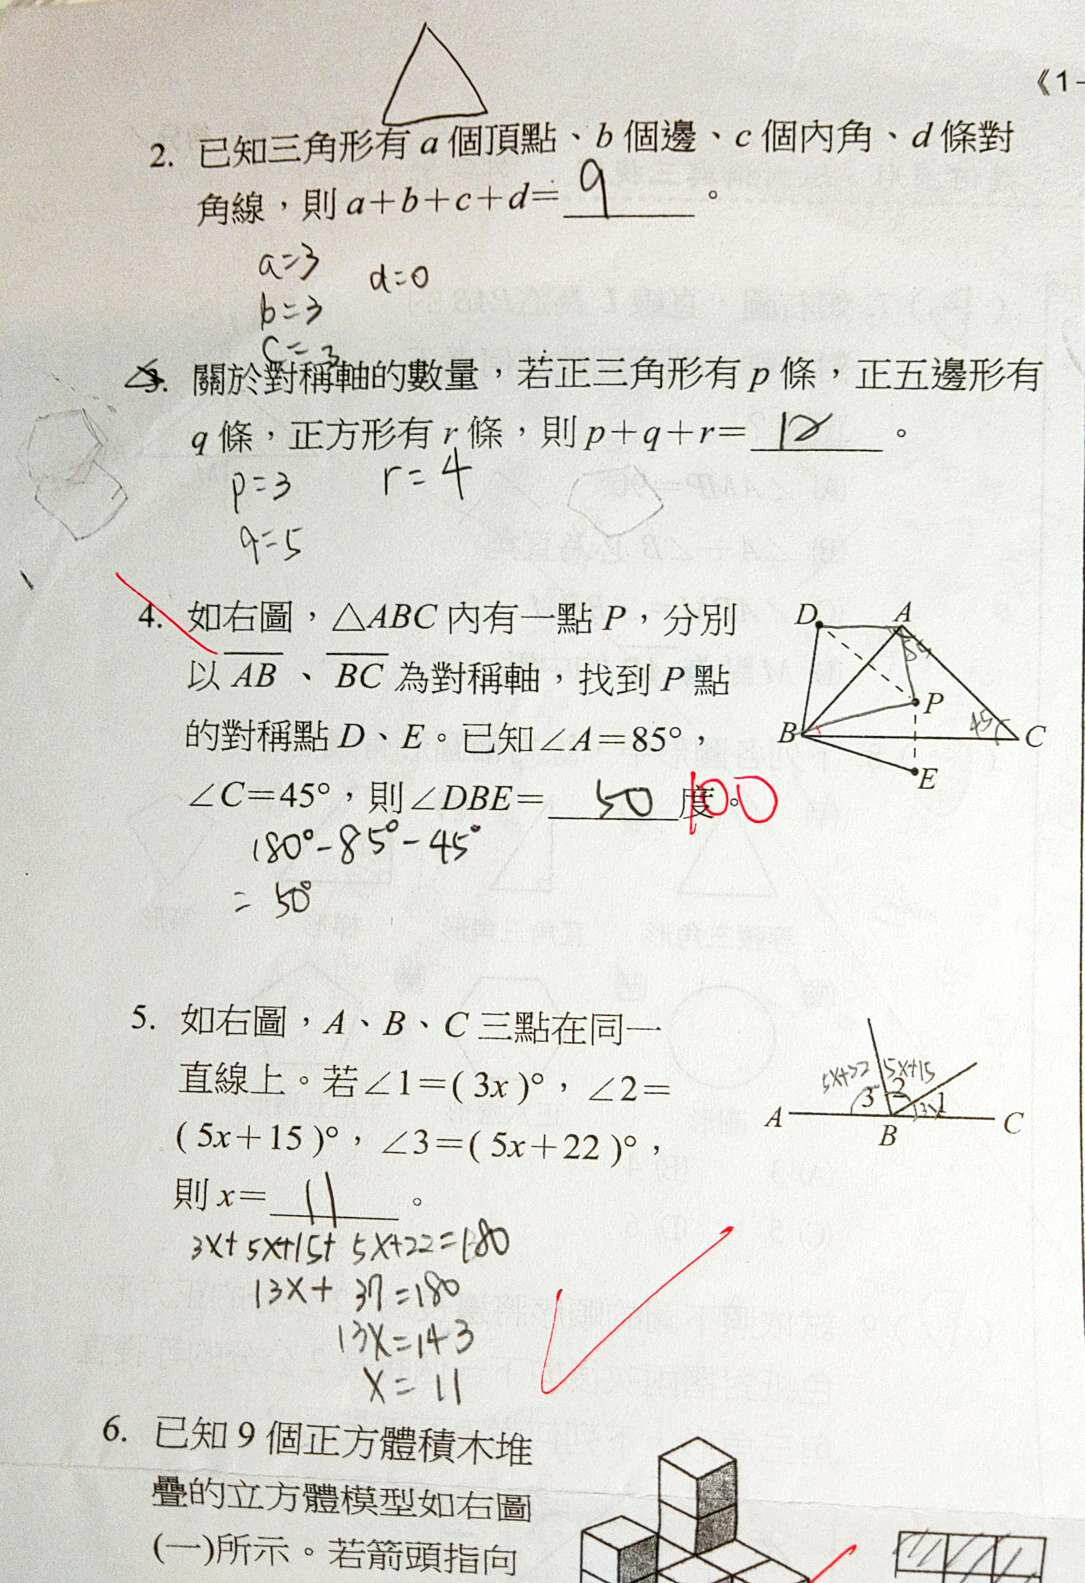 《1-
2. 已知三角形有 a 個頂點、b 個邊、c 個內角、d 條對
角線，則 a+b+c+d= 9 。
a=3 d=0
b=3
c=3
3. 關於對稱軸的數量，若正三角形有 p 條，正五邊形有
q 條，正方形有 r 條，則 p+q+r= 12 。
p=3 r=4
q=5
4. 如右圖，△ABC 內有一點 P，分別
以 AB、BC 為對稱軸，找到 P 點
的對稱點 D、E。已知∠A=85°，
∠C=45°，則∠DBE= 50 度。 100
180°-85°-45°
= 50°
D A 85
P
B 45 C
E
5. 如右圖，A、B、C 三點在同一
直線上。若∠1=( 3x )°，∠2=
( 5x+15 )°，∠3=( 5x+22 )°，
則 x= 11 。
5x+22 5x+15
3 2 3x 1
A B C
3x+5x+15+5x+22=180
13x+37=180
13x=143
x=11
6. 已知 9 個正方體積木堆
疊的立方體模型如右圖
(一)所示。若箭頭指向